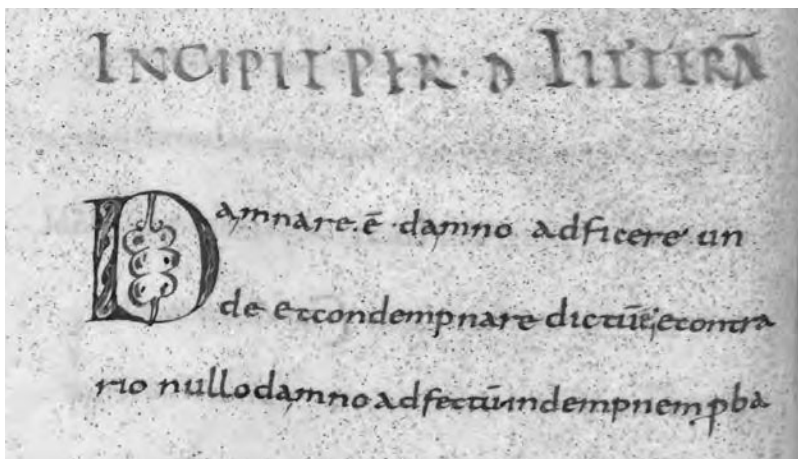 INCIPIT PER · D LITTERĀ
Damnare · ē · damno adficere un
de et condempnare dictū ē; econtra
rio nullo damno adfectū indempnem p̱ba